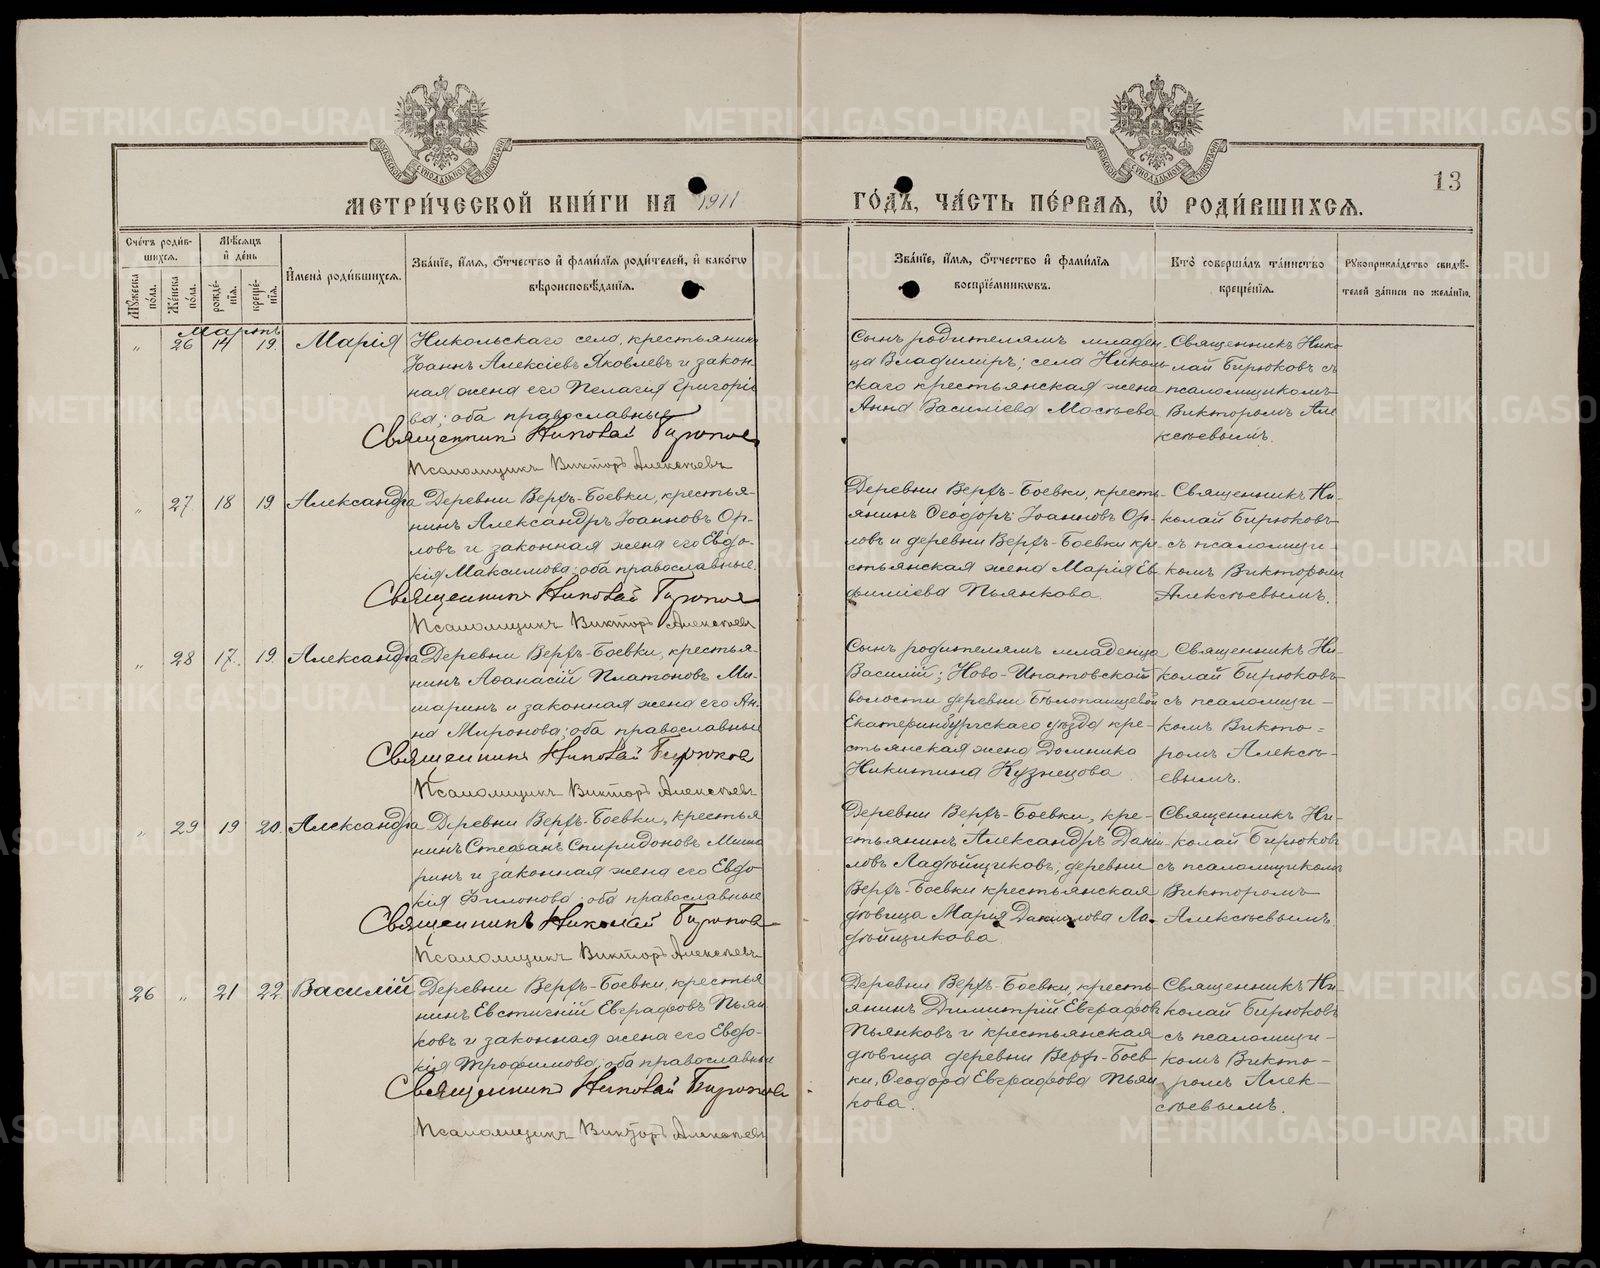 13
МЕТРИ́ЧЕСКОЙ КНИ́ГИ НА 1911 ГО́ДЪ, ЧА́СТЬ ПЕ́РВАЯ, Ѡ РОДИ́ВШИХСЯ.
Сче́тъ роди́в-
шихся.
Мѣ́сяцъ
и де́нь
Мꙋ́жеска
по́ла.
Же́нска
по́ла.
рожде́-
нія.
креще́-
нія.
Имена̀ роди́вшихся.
Зва́ніе, и́мя, о́тчество и фами́лія роди́телей, и како́гѡ
вѣроисповѣ́данія.
Зва́ніе, и́мя, о́тчество и фами́лія
воспріе́мникѡвъ.
Кто̀ соверша́лъ та́инство
креще́нія.
Рꙋкоприкла́дство свидѣ́-
телей за́писи по жела́нію.
Мартъ
„ 26 14 19. Марія
Никольскаго села, крестьянинъ
Іоаннъ Алексіевъ Яковлевъ и закон-
ная жена его Пелагія Григоріе
ва; оба православные
Священникъ Николай Бирюковъ
Псаломщикъ Викторъ Алексѣевъ
Сынъ родителямъ младен-
ца Владимиръ; села Николь
скаго крестьянская жена
Анна Василіева Мосѣева
Священникъ Нико
лай Бирюковъ съ
псаломщикомъ
Викторомъ Але
ксѣевымъ.
„ 27. 18 19. Александра
Деревни Верхъ-Боевки, крестья-
нинъ Александръ Іоанновъ Ор-
ловъ и законная жена его Евдо-
кія Максимова; оба православные.
Священникъ Николай Бирюковъ
Псаломщикъ Викторъ Алексѣевъ
Деревни Верхъ-Боевки, кресть-
янинъ Ѳеодоръ Іоанновъ Ор-
ловъ и деревни Верхъ-Боевки кре-
стьянская жена Марія Ев
фиміева Пьянкова.
Священникъ Ни-
колай Бирюковъ
съ псаломщи-
комъ Викторомъ
Алексѣевымъ.
„ 28 17. 19. Александра
Деревни Верхъ-Боевки, крестья-
нинъ Аѳанасій Платоновъ Ми-
шаринъ и законная жена его Ан-
на Миронова; оба православные
Священникъ Николай Бирюковъ
Псаломщикъ Викторъ Алексѣевъ
Сынъ родителямъ младенца
Василій; Ново-Ипатовской
волости деревни Бѣлопашцевой
Екатеринбургскаго уѣзда кре-
стьянская жена Домника
Никитина Кузнецова
Священникъ Ни-
колай Бирюковъ
съ псаломщи-
комъ Викто-
ромъ Алексѣ-
евымъ.
„ 29 19 20. Александра
Деревни Верхъ-Боевки, крестья
нинъ Стефанъ Спиридоновъ Миша
ринъ и законная жена его Евдо
кія Филонова; оба православные
Священникъ Николай Бирюковъ
Псаломщикъ Викторъ Алексѣевъ
Деревни Верхъ-Боевки, кре-
стьянинъ Александръ Даніи-
ловъ Ладѣйщиковъ; деревни
Верхъ-Боевки крестьянская
дѣвица Марія Даніилова Ла-
дѣйщикова
Священникъ Ни-
колай Бирюковъ
съ псаломщикомъ
Викторомъ
Алексѣевымъ.
26 „ 21 22. Василій
Деревни Верхъ-Боевки, крестья
нинъ Евстигній Евграфовъ Пьян
ковъ и законная жена его Евдо-
кія Трофимова; оба православные
Священникъ Николай Бирюковъ
Псаломщикъ Викторъ Алексѣевъ
Деревни Верхъ-Боевки, кресть-
янинъ Димитрій Евграфовъ
Пьянковъ и крестьянская
дѣвица деревни Верхъ-Боев
ки, Ѳеодора Евграфова Пьян
кова.
Священникъ Ни
колай Бирюковъ
съ псаломщи-
комъ Викто-
ромъ Алек-
сѣевымъ.
METRIKI.GASO-URAL.RU